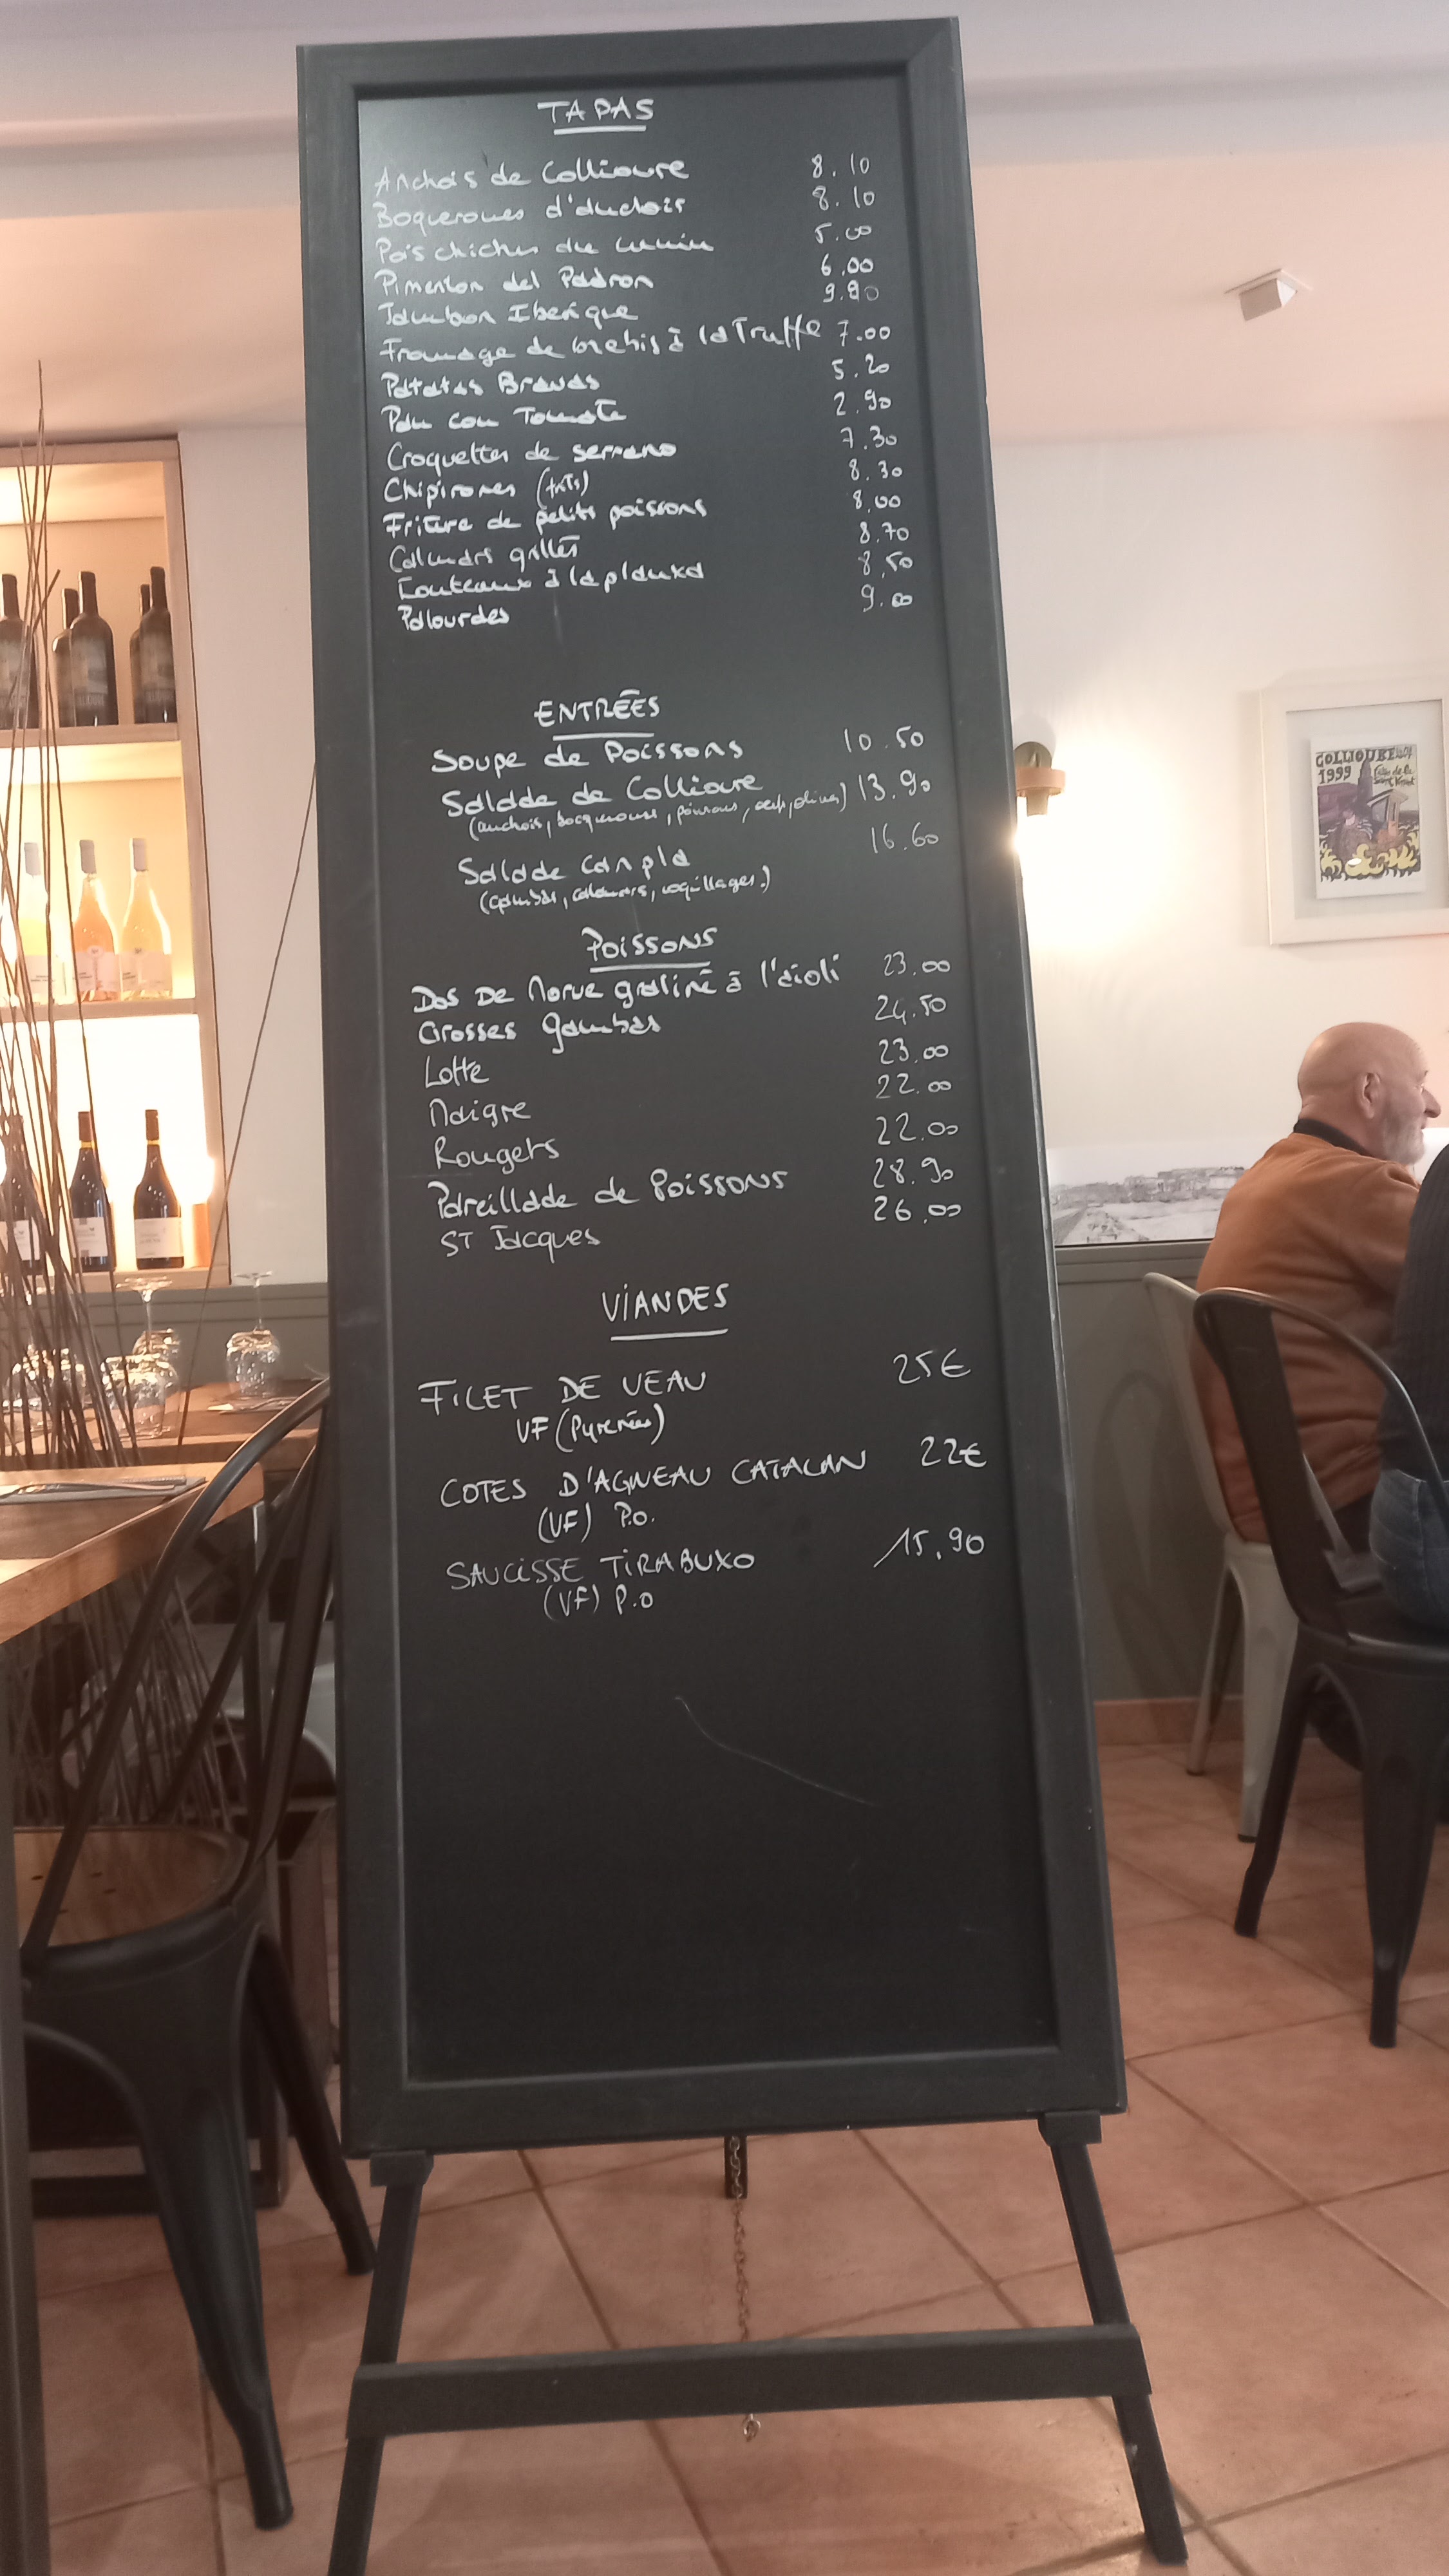 TAPAS
Anchois de Collioure 8.10
Boquerones d'anchois 8.10
Pois chiches au cumin 5.00
Pimenton del Padron 6.00
Jambon Iberique 9.90
Fromage de brebis à la Truffe 7.00
Patatas Bravas 5.20
Pan con Tomate 2.90
Croquettes de serrano 7.30
Chipirones (frits) 8.30
Friture de petits poissons 8.00
Calamars grillés 8.70
Couteaux à la plancha 8.50
Palourdes 9.00
ENTRÉES
Soupe de Poissons 10.50
Salade de Collioure 13.90
(anchois, boquerones, poivrons, oeuf, olives)
Salade Canpla 16.60
(gambas, calamars, coquillages.)
POISSONS
Dos De Morue gratiné à l'aioli 23.00
Grosses gambas 24.50
Lotte 23.00
Maigre 22.00
Rougets 22.00
Pareillade de Poissons 28.90
ST Jacques 26.00
VIANDES
FILET DE VEAU 25€
VF (Pyrenées)
COTES D'AGNEAU CATALAN 22€
(VF) P.O.
SAUCISSE TIRABUXO 15.90
(VF) P.O
COLLIOURE
1999